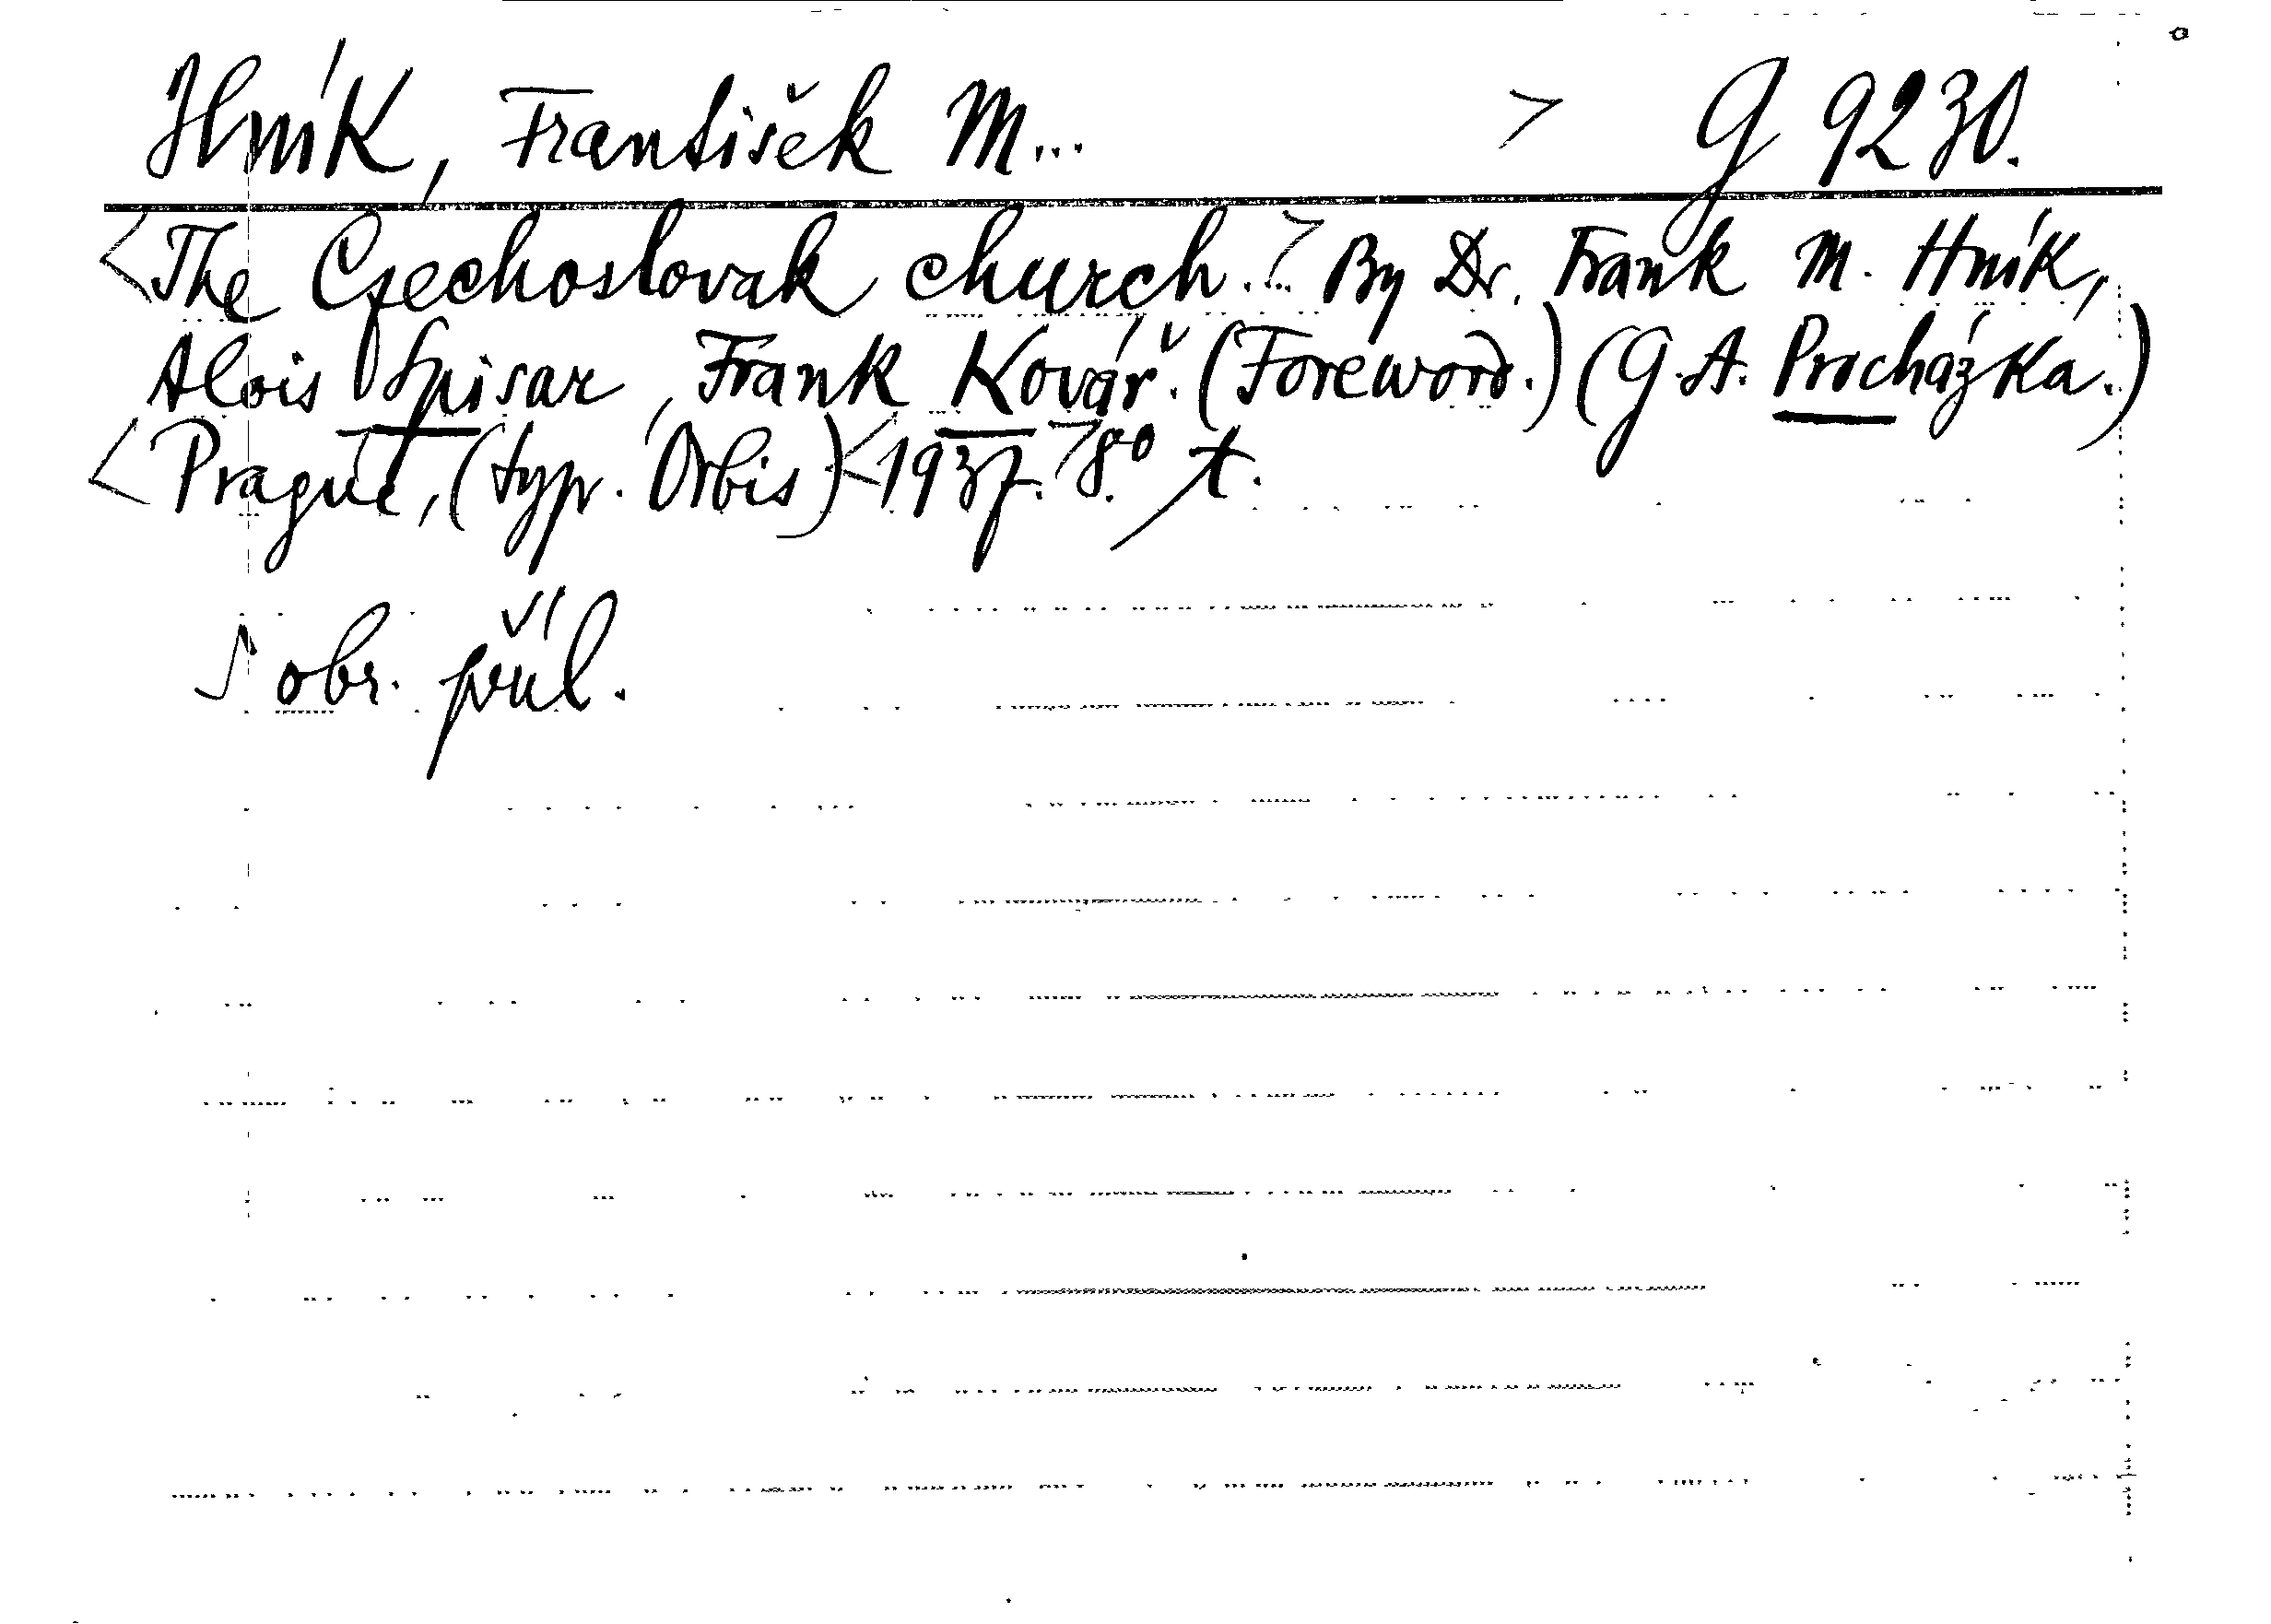 Hník, František M... > G 9230.
<The Czechoslovak church...> By Dr. Frank M. Hník,
Alois Spisar, Frank Kovář. (Foreword.) (G. A. Procházka.)
<Prague, (typr. Orbis) <1937.> 8.° t.
S obr. příl.